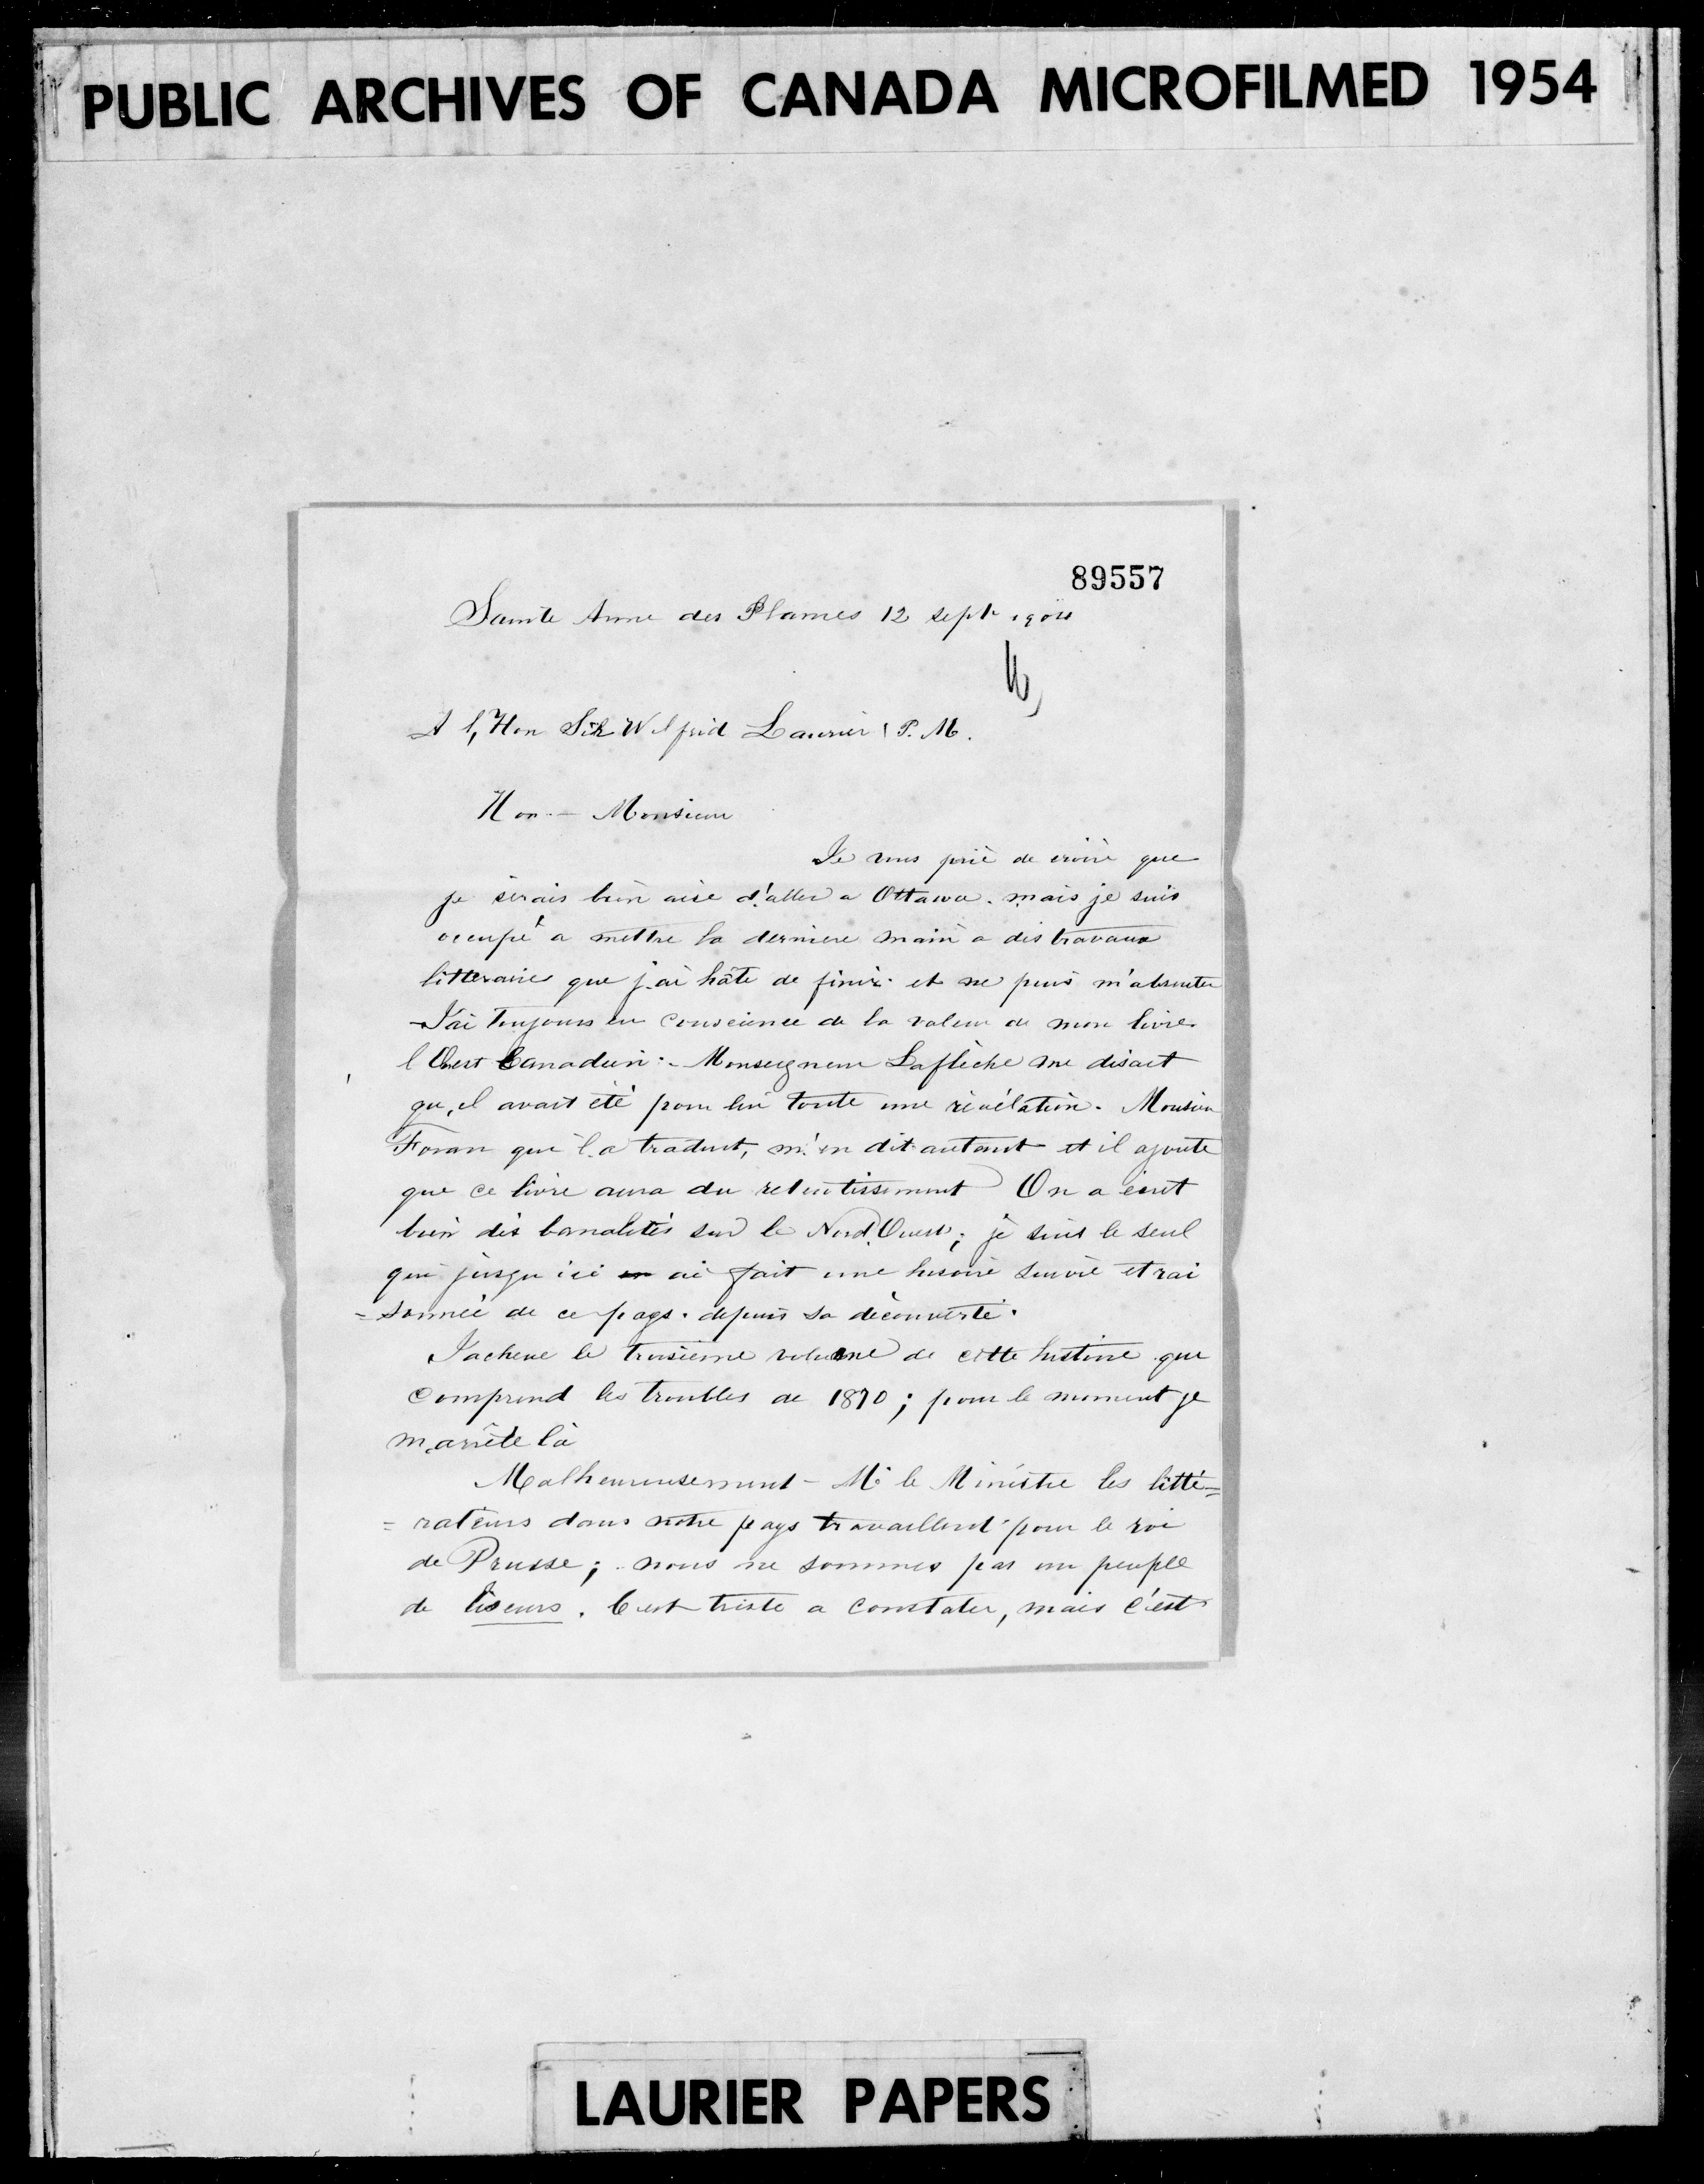 PUBLIC ARCHIVES OF CANADA MICROFILMED 1954
89557
Sainte Anne des Plaines 12 sept
A l, Hon Sir Wilfrid Laurier P. M.
Hon - Monsieur
Je vous prie de croire que
je serais bien aise d'aller a Ottawa. mais je suis
occupé a mettre la derniere main a des travaux
litteraires que j'ai hâte de finir et ne puis m'absenter
- J'ai toujours eu conscience de la valeur de mon livre
l Ouest Canadien :- Monseigneur Lafleche me disait
qu, il avait été pour lui toute une révélation. Monsieur
Foran qui l'a traduit, m'en dit autant et il ajoute
que ce livre aura du retentissement On a écrit
bien des banalités sur le Nord. Ouest ; je suis le seul
qui jusqu ici ai fait une histoire suivie et rai
= sonnée de ce pays. depuis sa découverte.
J'acheve le troisieme volume de cette histoire qui
comprend les troubles de 1870 ; pour le moment je
m,arrête là
Malheureusement - Mr le Ministre les litté=
= rateurs dans notre pays travaillent pour le roi
de Prusse ; nous ne sommes pas un peuple
de liseurs. C'est triste a constater, mais c'est
LAURIER PAPERS